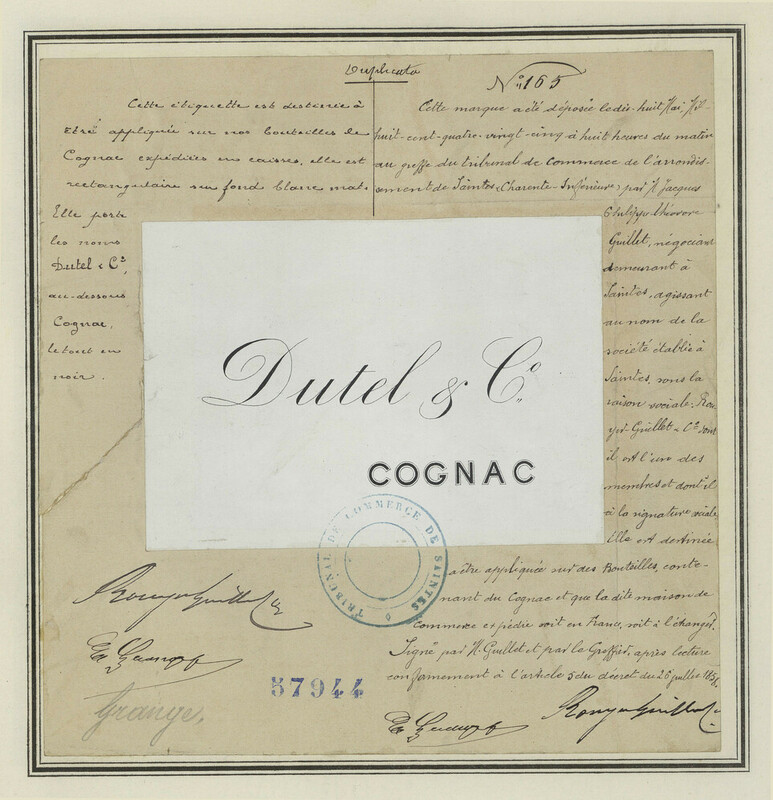 Duplicata
Cette étiquette est destinée à
être appliquée sur nos bouteilles de
Cognac expédiées en caisses, elle est
rectangulaire sur fond blanc mat.
Elle porte
les noms
Dutel & Cº,
au-dessous
Cognac,
le tout en
noir.
Nº 165
Cette marque a été déposée le dix-huit Mai, Mil-
huit-cent-quatre-vingt-cinq à huit heures du matin
au greffe du tribunal de commerce de l'arrondis-
sement de Saintes (Charente-Inférieure) par M. Jacques
Philippe Théodore
Guillet, négociant
demeurant à
Saintes, agissant
au nom de la
société établie à
Saintes, sous la
raison sociale: Rou
yer Guillet & Cie dont
il est l'un des
membres et dont il
a la signature sociale.
Elle est destinée
à être appliquée sur des Bouteilles, conte-
nant du Cognac et que la dite maison de
commerce expédie soit en France, soit à l'étranger.
Signé par M. Guillet et par le Greffier, après lecture
conformément à l'article 5 du décret du 26 juillet 1858.
Dutel & Cº
COGNAC
TRIBUNAL DE COMMERCE DE SAINTES
Rouyer Guillet &
57944
Grange,
Rouyer Guillet &